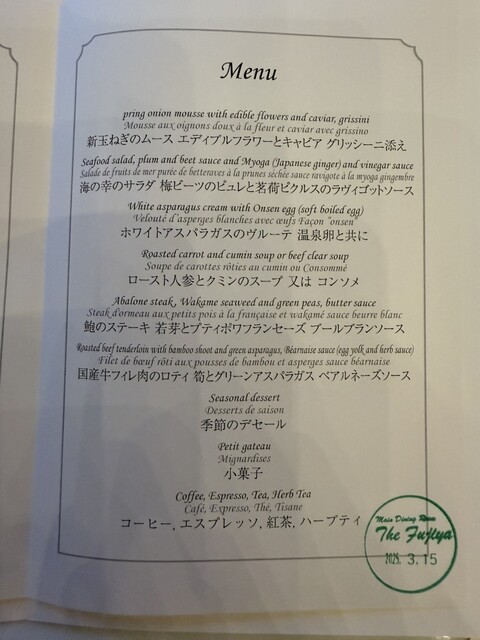 Menu
pring onion mousse with edible flowers and caviar, grissini
Mousse aux oignons doux à la fleur et caviar avec grissino
新玉ねぎのムース エディブルフラワーとキャビア グリッシーニ添え
Seafood salad, plum and beet sauce and Myoga (Japanese ginger) and vinegar sauce
Salade de fruits de mer purée de betteraves à la prunes séchée sauce ravigote à la myoga gingembre
海の幸のサラダ 梅ビーツのピュレと茗荷ピクルスのラヴィゴットソース
White asparagus cream with Onsen egg (soft boiled egg)
Velouté d'asperges blanches avec œufs Façon "onsen"
ホワイトアスパラガスのヴルーテ 温泉卵と共に
Roasted carrot and cumin soup or beef clear soup
Soupe de carottes rôties au cumin ou Consommé
ロースト人参とクミンのスープ 又は コンソメ
Abalone steak, Wakame seaweed and green peas, butter sauce
Steak d'ormeau aux petits pois à la française et wakamé sauce beurre blanc
鮑のステーキ 若芽とプティポワフランセーズ ブールブランソース
Roasted beef tenderloin with bamboo shoot and green asparagus, Béarnaise sauce (egg yolk and herb sauce)
Filet de bœuf rôti aux pousses de bambou et asperges sauce béarnaise
国産牛フィレ肉のロティ 筍とグリーンアスパラガス ベアルネーズソース
Seasonal dessert
Desserts de saison
季節のデセール
Petit gateau
Mignardises
小菓子
Coffee, Espresso, Tea, Herb Tea
Café, Expresso, Thé, Tisane
コーヒー, エスプレッソ, 紅茶, ハーブティ
Main Dining Room
The Fujiya
2025. 3.15